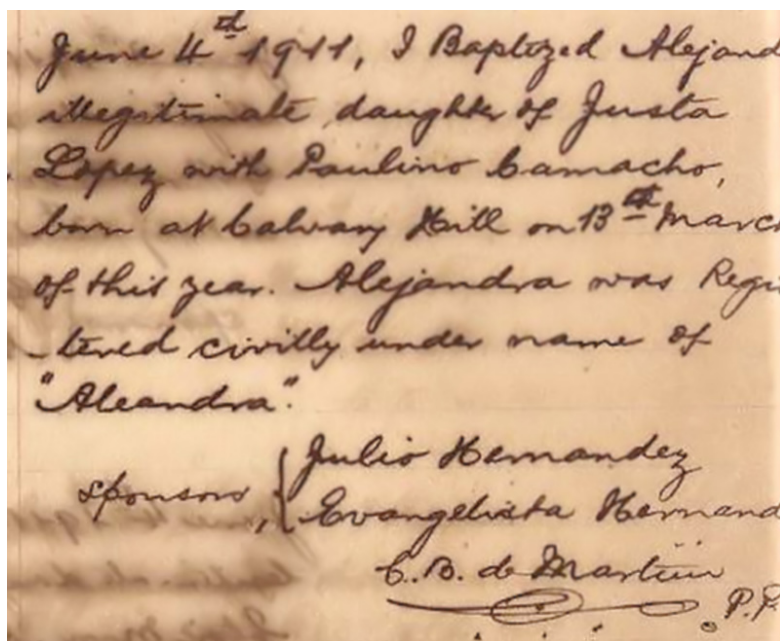 June 4th 1911, I Baptized Alejand
illegitimate daughter of Justa
Lopez with Paulino Camacho,
born at Calvary Hill on 13th March
of this year. Alejandra was Regi
-tered civilly under name of
"Aleandra".
Julio Hernandez
sponsors, { Evangelista Hernand
C. B. de Martini
P.P.